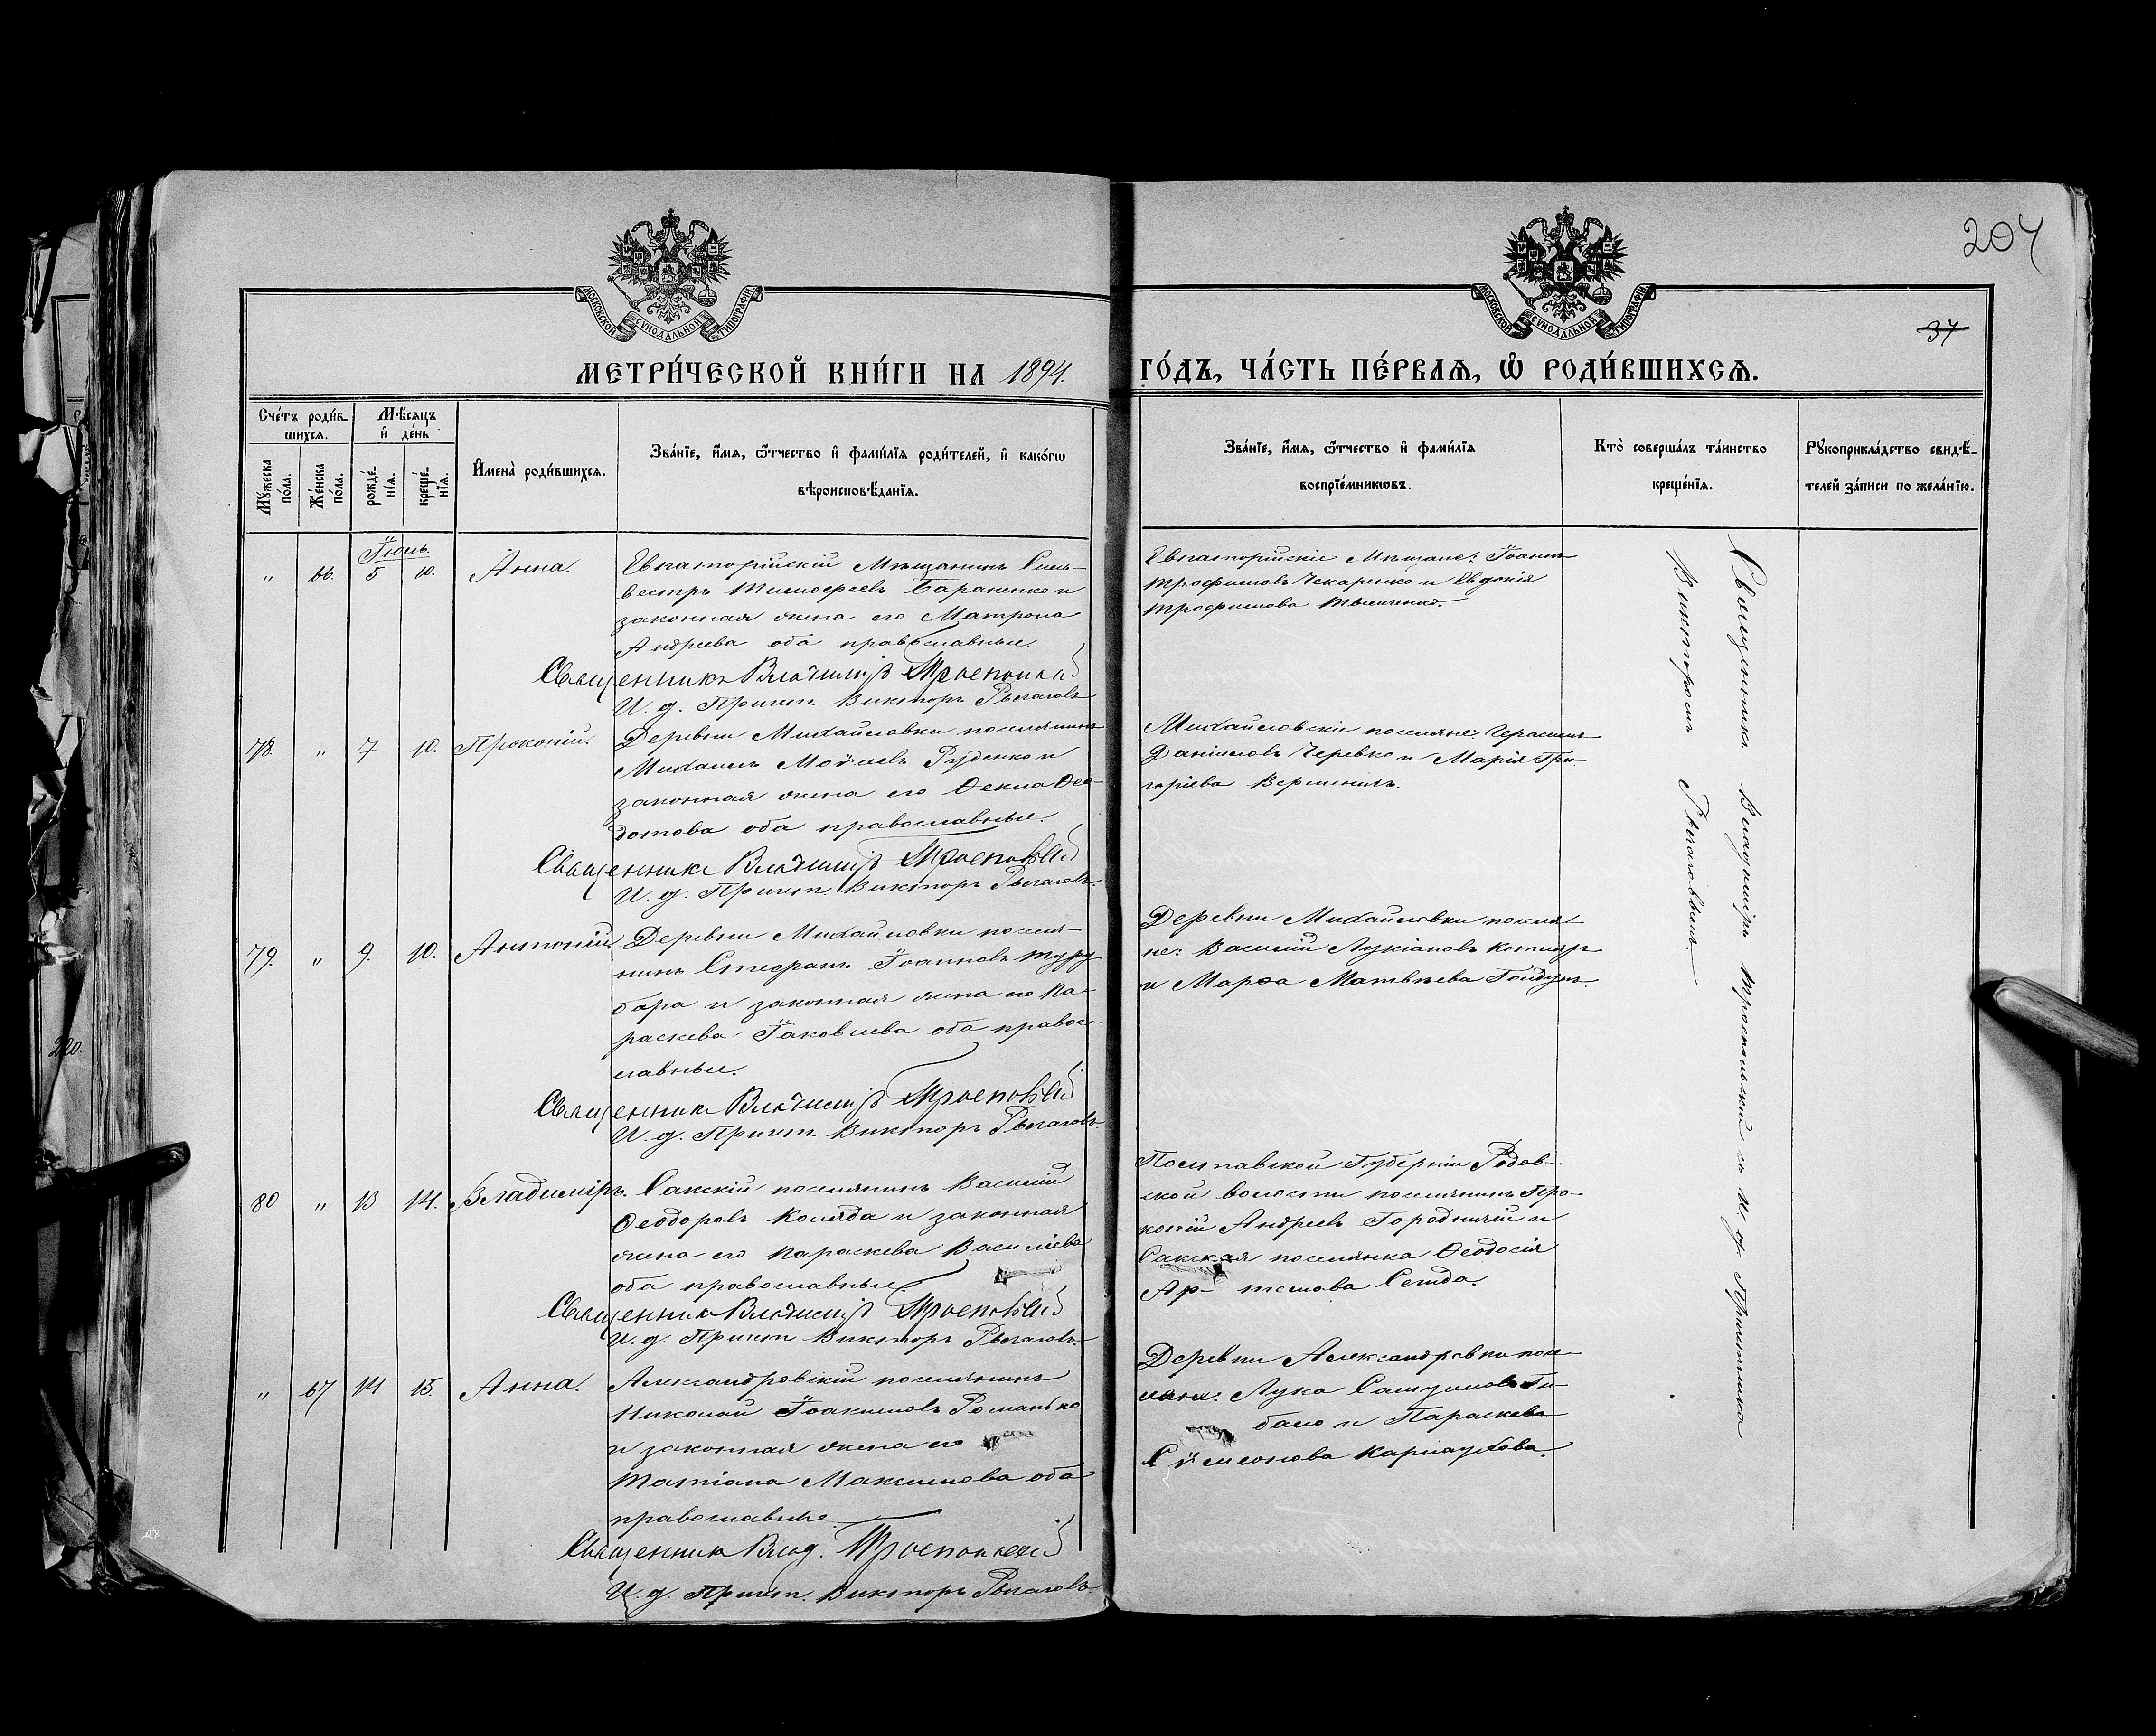 204
37
МОСКОВСКОЙ СѴНОДАЛЬНОЙ ТИПОГРАФІИ
МОСКОВСКОЙ СѴНОДАЛЬНОЙ ТИПОГРАФІИ
МЕТРИ́ЧЕСКОЙ КНИ́ГИ НА 1894. ГО́ДЪ, ЧА́СТЬ ПЕ́РВАѦ, Ѽ РОДИ́ВШИХСѦ.
Сче́тъ роди́в-
шихся.
Мѣ́сяцъ
и҆ де́нь
Мꙋ́жеска
по́ла.
Же́нска
по́ла.
рожде́-
нїя.
креще́-
нїя.
И҆мена̀ роди́вшихся.
Зва́нїе, и҆́мя, ѻ҆́тчество и҆ фами́лїя роди́телей, и҆ како́гѡ
вѣроисповѣ́данїя.
Зва́нїе, и҆́мя, ѻ҆́тчество и҆ фами́лїя
воспрїе́мникѡвъ.
Кто̀ соверша́лъ та́инство
креще́нїя.
Рꙋкоприкла́дство свидѣ́-
телей за́писи по жела́нїю.
Іюль.
" 66. 5 10. Анна.
Евпаторійскій Мѣщанинъ Силь-
вестръ Тимоѳеевъ Бараненко и
законная жена его Матрона
Андреева оба православные.
Священникъ Владиміръ Троепольскій
И. д. Причет. Викторъ Рыгаловъ
Евпаторійскіе Мѣщане: Іоаннъ
Трофимовъ Чекаренко и Евдокія
Трофимова
78. " 7 10. Прокопій.
Деревни Михайловки поселянинъ
Михаилъ Моѵсеевъ Руденко и
законная жена его Ѳекла Ѳео-
дотова оба православные.
Священникъ Владиміръ Троепольскій
И. д. Причет. Викторъ Рыгаловъ
Михайловскіе поселяне: Герасимъ
Даніиловъ Черевко и Марія Гри-
горіева
79. " 9. 10. Антоній
Деревни Михайловки поселя-
нинъ Стефанъ Іоанновъ Туру-
бара и законная жена его Па-
раскева Іаковлева оба правос-
лавные.
Священникъ Владиміръ Троепольскій
И. д. Причет. Викторъ Рыгаловъ
Деревни Михайловки поселя-
не: Василій Лукіановъ Котляръ
и Марѳа Матвѣева
80 " 13 14. Владиміръ.
Сакскій поселянинъ Василій
Ѳеодоровъ Коляда и законная
жена его Параскева Василіева
оба православные.
Священникъ Владиміръ Троепольскій
И. д. Причет. Викторъ Рыгаловъ
Полтавской Губерніи
ской волости поселянинъ Про-
копій Андреевъ Городничій и
Сакская поселянка Ѳеодосія
Ар- темова
" 67 14 15. Анна.
Александровскій поселянинъ
Николай Іоакимовъ Романько
и законная жена его
Татіана Максимова оба
православные
Священникъ Влад. Троепольскій
И. д. Причет. Викторъ Рыгаловъ
Деревни Александровки посе-
ляне: Лука
и Параскева
Сѵмеонова Карнаухова.
Священникъ Владиміръ Троепольскій съ И. д. Причетника
Викторомъ Рыгаловымъ
220.